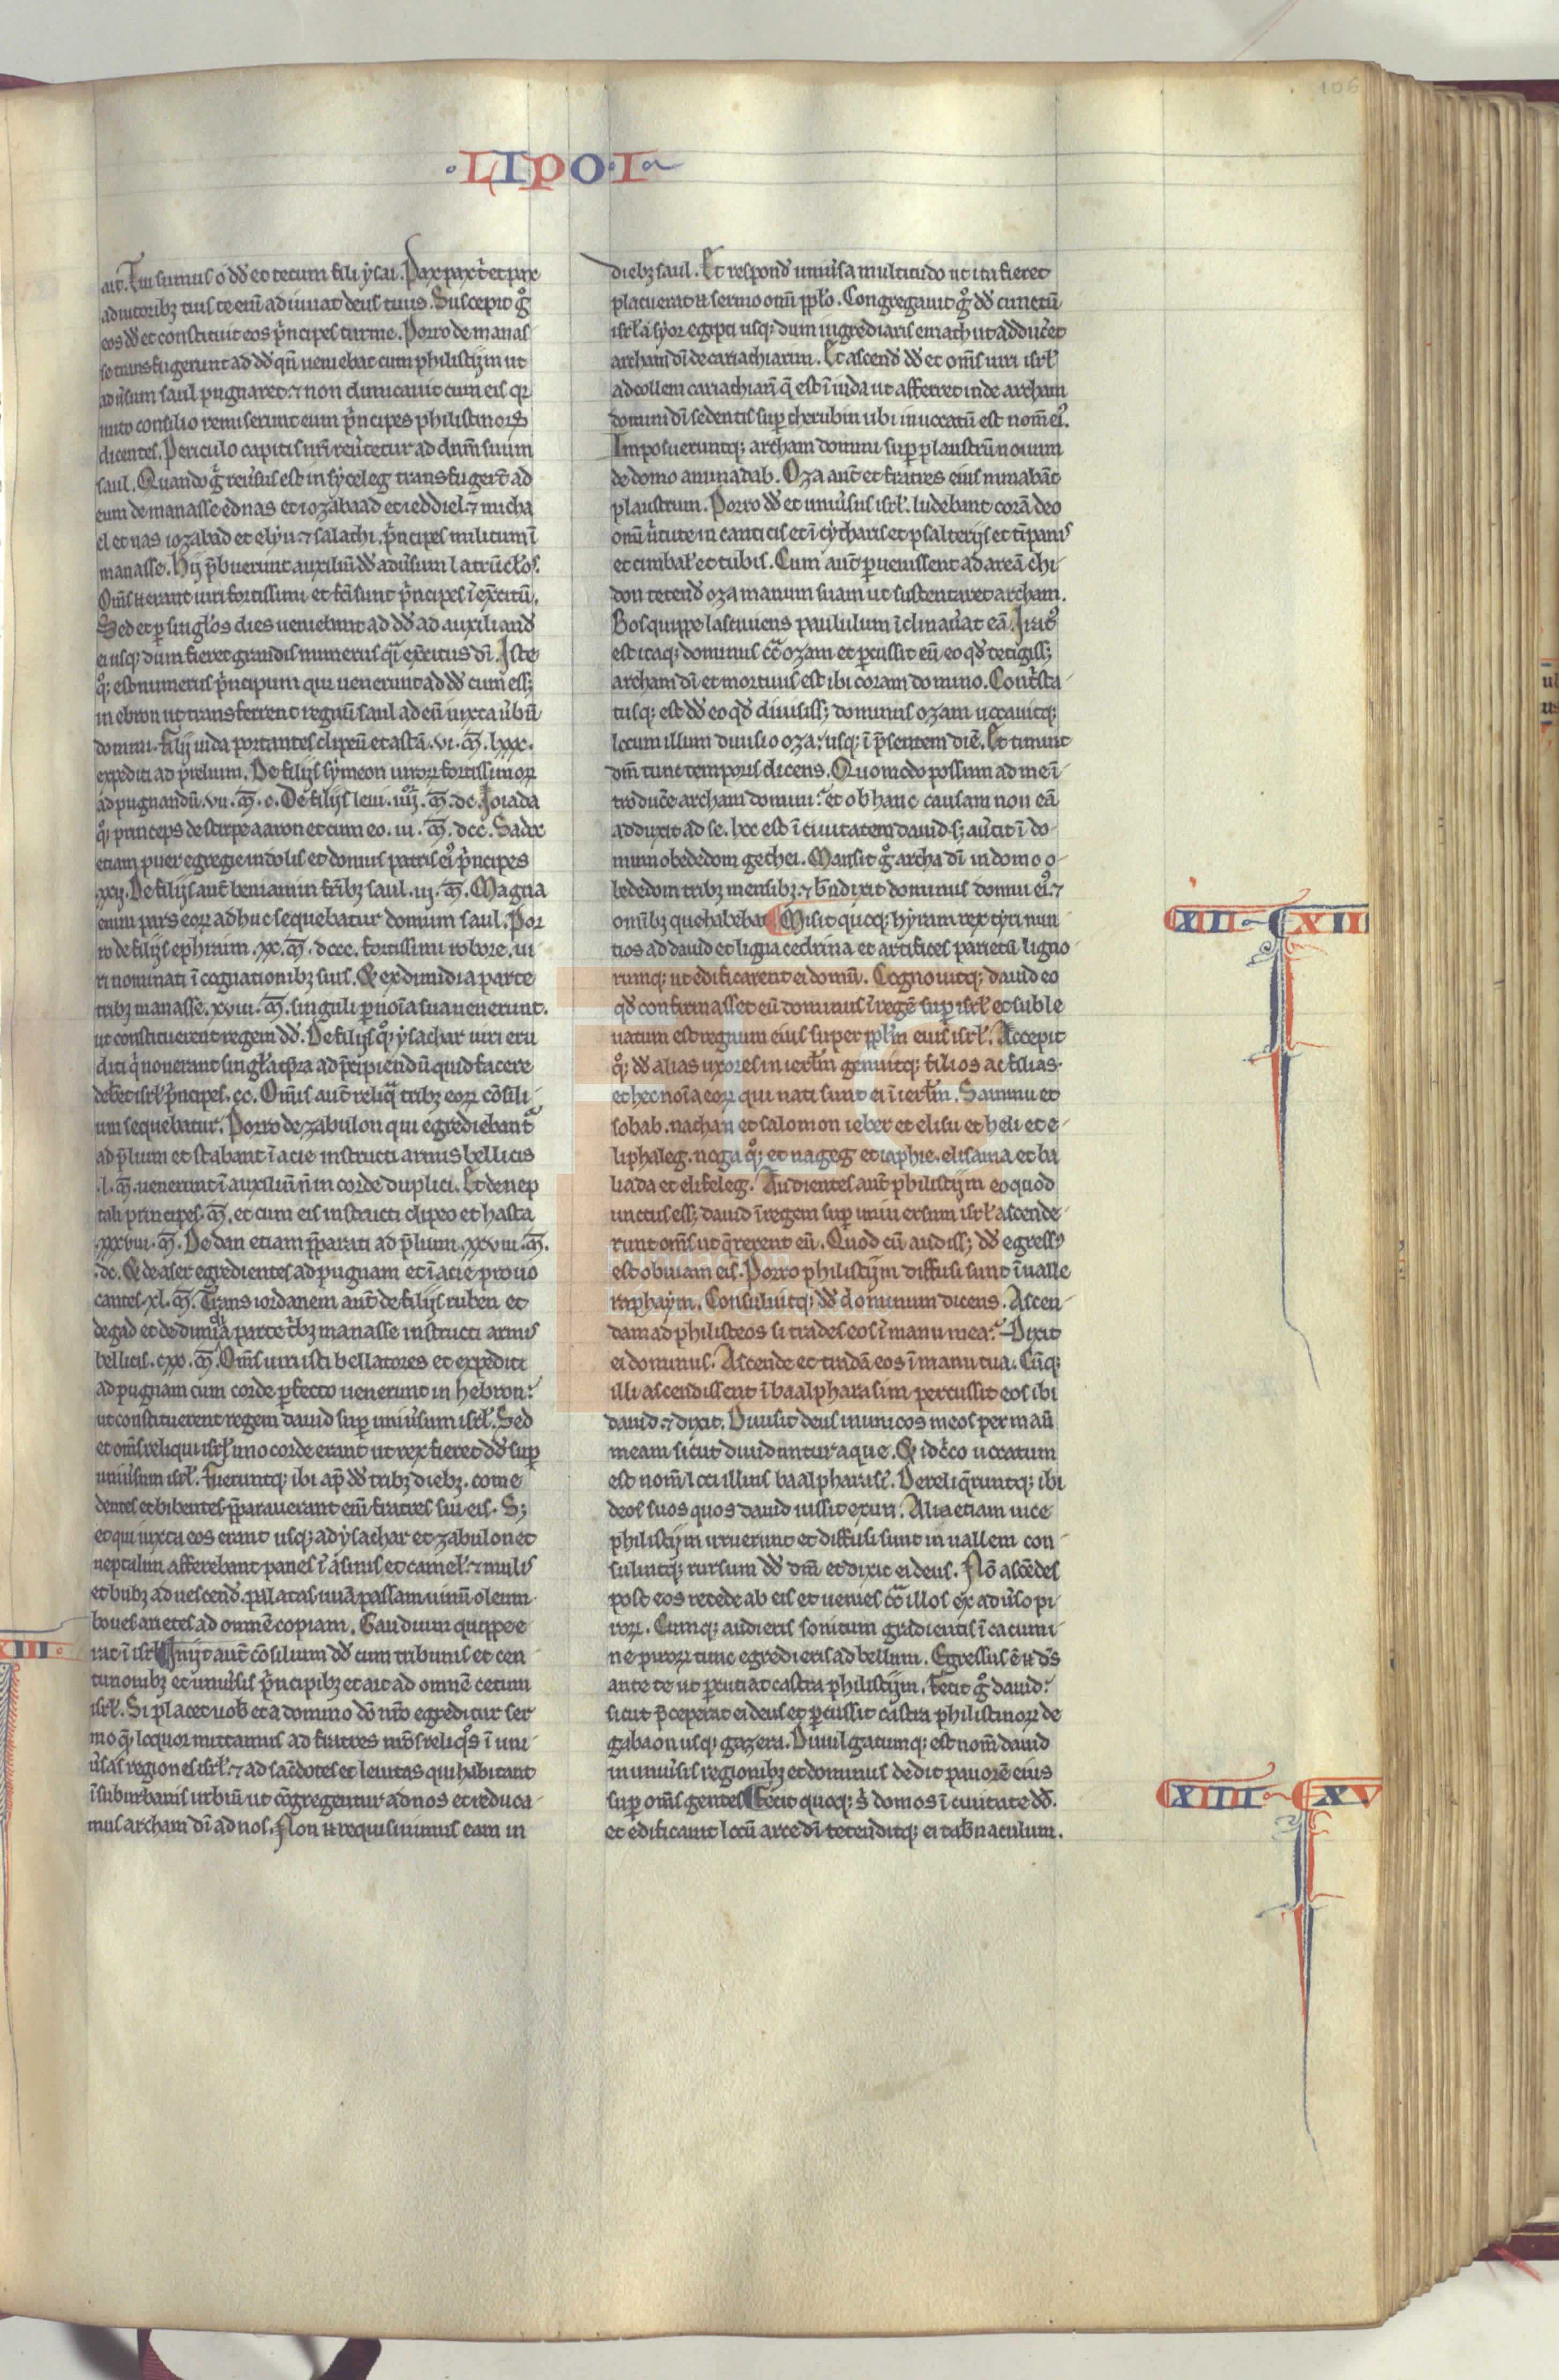 106
·LIPO·I
ait. Tui sumus o dd̄ et tecum fili ẏsai. Pax pax t̄ et pax
adiutoribꝫ tuis te eni᷒ adiuuat deus tuus. Suscepit gͦ
eos dd̄ et constituit eos pͥncipes turme. Porro de manas
se transfugerunt ad dd̄ qn̄ ueniebat cum philistijm ut
adu᷒sum saul pugnaret. ⁊ non dimicauit cum eis qꝛ
inito consilio remiserunt eum pͥncipes philistinoꝝ
dicentes. Periculo capitis nr̄i reu᷒tetur ad dn̄m suum
saul. Quando gͥ reu᷒sus est in sẏceleg transfuger̄t ad
eum de manasse ednas et iozabaad et ieddiel. ⁊ micha
el et nas iozabad et elẏu. ⁊ salachi. pͥncipes militum ī
manasse. Hij p̄buerunt auxiliū dd̄ adu᷒sum latrūcl̄os.
Om̄s n̄ erant uiri fortissimi et fc̄i sunt pͥncipes ī exc̄itū.
Sed et ꝑ singl̄os dies ueniebant ad dd̄ ad auxiliand̄
ei usqꝫ dum fieret grandis numerus qͣi exc̄itus dī. Iste
qͦꝫ est numerus pͥncipum qui uenerunt ad dd̄ cum essꝫ
in ebron ut transferrent regnū saul ad eū iuxta u᷒bū
domini. Filij iuda portantes clipeū et astā .vi. m̄. lxxx.
expediti ad p̄lium. De filijs sẏmeon uiroꝝ fortissimoꝝ
ad pugnandū .vii. m̄. c. De filijs leui .iiij. m̄. dc. Ioiada
qͦꝫ princeps de stirpe aaron et cum eo .iii. m̄. dcc. Sadoc
etiam puer egregie indolis et domus patris eiꝰ pͥncipes
.xxij. De filijs aut̄ beniamin fr̄ibꝫ saul .iij. m̄. Magna
enim pars eoꝝ adhuc sequebatur domum saul. Por
ro de filijs ephraim .xx. m̄. dccc. fortissimi robore. ui
ri nominati ī cognationibꝫ suis. Et ex dimidia parte
tribꝫ manasse .xviii. m̄. singuli ꝑ noīa sua uenerunt.
ut constituerent regem dd̄. De filijs qͦꝫ ẏsachar uiri eru
diti qͥ nouerant singl̄a tp̄ra ad p̄cipiendū quid facere
deb᷒et isrl̄ pͥncipes .cc. Om̄is aut̄ reliqͣ tribꝫ eoꝝ cōsili
um sequebatur. Porro de zabulon qui egrediebantᷓ
ad p̄lium et stabant ī acie instructi armis bellicis
.l. m̄. uenerunt ī auxiliū n̄ in corde duplici. Et de nep
tali principes .m̄. et cum eis instructi clipeo et hasta
.xxxvii. m̄. De dan etiam p̄parati ad p̄lium .xxviii. m̄.
.dc. Et de aser egredientes ad pugnam et ī acie prouo
cantes .xl. m̄. Trans iordanem aut̄ de filijs ruben et
de gad et de dimīa parte tͥbꝫ manasse instructi armis
bellicis .cxx. m̄. Om̄s uiri isti bellatores et expediti
ad pugnam cum corde ꝑfecto uenerunt in hebron:
ut constituerent regem dauid suꝑ uniu᷒sum isrl̄. Sed
et om̄s reliqui isrl̄ uno corde erant ut rex fieret dd̄ suꝑ
uniu᷒sum isrl̄. Fueruntqꝫ ibi ap̄ dd̄ tribꝫ diebꝫ. come
dentes et bibentes p̄parauerant eni᷒ fratres sui eis. Sꝫ
et qui iuxta eos erant usqꝫ ad ẏsachar et zabulon et
neptalim afferebant panes ī asinis et camel̄. ⁊ mulis
et bubꝫ ad uescend̄. palatas uuā passam uinū oleum
boues arietes ad omnē copiam. Gaudium quippe e
XIII
rat ī isrl̄. Inijt aut̄ cōsilium dd̄ cum tribunis et cen
turionibꝫ et uniu᷒sis pͥncipibꝫ et ait ad omnē cetum
isrl̄. Si placet uob᷒ et a domino dō nr̄o egreditur ser
mo q̄ loquor mittamus ad fratres nr̄os reliqͦs ī uni
u᷒sas regiones isrl̄. ⁊ ad sac᷒dotes et leuitas qui habitant
ī suburbanis urbiū ut cōgregentur ad nos et reduca
mus archam dī ad nos. Non n̄ requisiuimus eam in
diebꝫ saul. Et respond̄ uniu᷒sa multitudo ut ita fieret
placuerat n̄ sermo omī ppl̄o. Congregauit gͦ dd̄ cunctū
isrl̄ a sẏor egipti usqꝫ dum ingrediaris emath ut adduc᷒et
archam dī de cariathiarim. Et ascend̄ dd̄ et om̄s uiri isrl̄
ad collem cariathiarī q̄ est ī iuda ut afferret inde archam
domini dī sedentis suꝑ cherubin ubi inuocatū est nom̄ eiꝰ.
Imposueruntqꝫ archam domini suꝑ plaustrū nouum
de domo aminadab. Oza aut̄ et fratres eius minabāt
plaustrum. Porro dd̄ et uniu᷒sus isrl̄. ludebant corā deo
omī u᷒tute in canticis et ī cẏtharis et psalterijs et tīpanis
et cimbal̄ et tubis. Cum aut̄ ꝑuenissent ad areā chi
don tetend̄ oza manum suam ut sustentaret archam.
Bos quippe lasciuiens paululum īclinau᷒at eā. Iratꝰ
est itaqꝫ dominus cͣ ozam et ꝑcussit eū eo qd̄ tetigissꝫ
archam dī et mortuus est ibi coram domino. Contͥsta
tusqꝫ est dd̄ eo qd̄ diuisissꝫ dominus ozam uocauitqꝫ
locum illum diuisio oza. usqꝫ ī p̄sentem diē. Et timuit
dm̄ tunc temporis dicens. Quomodo possum ad me ī
troduc᷒e archam domini? et ob hanc causam non eā
adduxit ad se. hoc est ī ciuitatem dauid. sꝫ au᷒tit ī do
mum obededom gethei. Mansit gͦ archa dī in domo o
bededom tribꝫ mensibꝫ. ⁊ bn̄dixit dominus domui eiꝰ. ⁊
omībꝫ que habebat. Misit quoqꝫ hẏram rex tẏri nun
XII XII
tios ad dauid et ligna cedrina et artifices parietū ligno
rumqꝫ ut edificarent ei domū. Cognouitqꝫ dauid eo
qd̄ confirmasset eū dominus ī regē suꝑ isrl̄ et suble
uatum est regnum eius super ppl̄m eius isrl̄. Accepit
qͦꝫ dd̄ alias uxores in ierl̄m genuitqꝫ filios ac filias.
et hec noīa eoꝝ qui nati sunt ei ī ierl̄m. Sammu et
sobab. nathan et salomon ieber et elisu et heli et e
liphaleg. noga qͦꝫ et napheg et iaphie. elisama et ba
liada et elifeleg. Audientes aut̄ philistijm eo quod
unctus essꝫ dauid ī regem suꝑ uniuersum isrl̄ ascende
runt om̄s ut q̄rerent eū. Quod cū audissꝫ dd̄ egressꝰ
est obuiam eis. Porro philistijm diffusi sunt ī ualle
raphaẏm. Consuluitqꝫ dd̄ dominum dicens. Ascen
dam ad philisteos si trades eos ī manu mea? Dixit
ei dominus. Ascende et tradā eos ī manu tua. Cūqꝫ
illi ascendissent ī baalpharasim percussit eos ibi
dauid. ⁊ dixit. Diuisit deus inimicos meos per manū
meam sicut diuiduntur aque. Et idc᷒co uocatum
est nom̄ loci illius baalpharasī. Dereliq̄runtqꝫ ibi
deos suos quos dauid iussit exuri. Alia etiam uice
philistijm irruerunt et diffusi sunt in uallem con
suluitqꝫ rursum dd̄ dm̄ et dixit ei deus. Nō ascēdes
post eos recede ab eis et uenies cͣ illos ex adu᷒so pi
roꝝ. Cumqꝫ audieris sonitum gradientis ī cacumi
ne piroꝝ tunc egredieris ad bellum. Egressus ē n̄ ds̄
ante te ut ꝑcutiat castra philistijm. Fecit gͦ dauid.
sicut p̄ceperat ei deus et ꝑcussit castra philistinoꝝ de
gabaon usqꝫ gazera. Diuulgatumqꝫ est nom̄ dauid
in uniu᷒sis regionibꝫ et dominus dedit pauorē eius
suꝑ om̄s gentes. Fecit quoqꝫ sͥ domos ī ciuitate dd̄.
XIIII XV
et edificauit locū arce dī tetenditqꝫ ei tab᷒naculum.